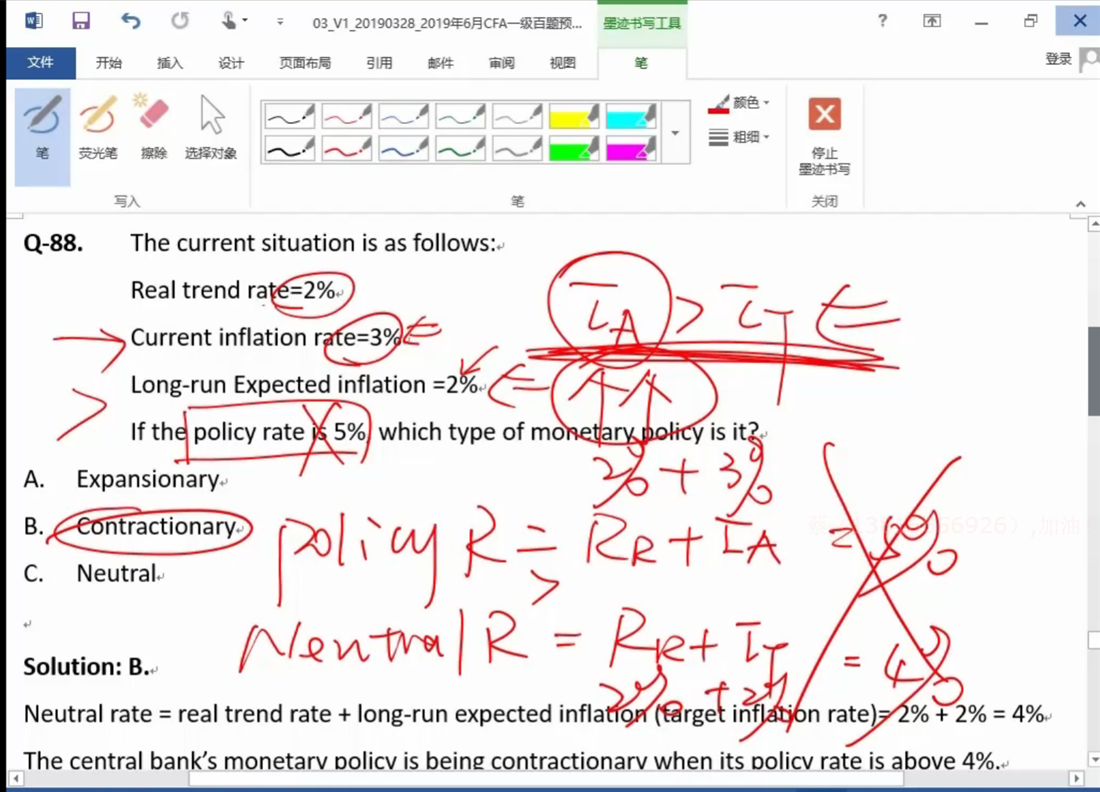 03_V1_20190328_2019年6月CFA一级百题预...
墨迹书写工具
?
文件 开始 插入 设计 页面布局 引用 邮件 审阅 视图 笔 登录
笔 荧光笔 擦除 选择对象 颜色 粗细 停止墨迹书写
写入 笔 关闭
Q-88. The current situation is as follows:
Real trend rate=2%
Current inflation rate=3%
IA > IT
Long-run Expected inflation =2%
If the policy rate is 5%, which type of monetary policy is it?
A. Expansionary
2% + 3%
B. Contractionary
policy R = RR + IA = 5%
>
C. Neutral
Neutral R = RR + IT = 4%
2% + 2%
Solution: B.
Neutral rate = real trend rate + long-run expected inflation (target inflation rate)= 2% + 2% = 4%
The central bank's monetary policy is being contractionary when its policy rate is above 4%.